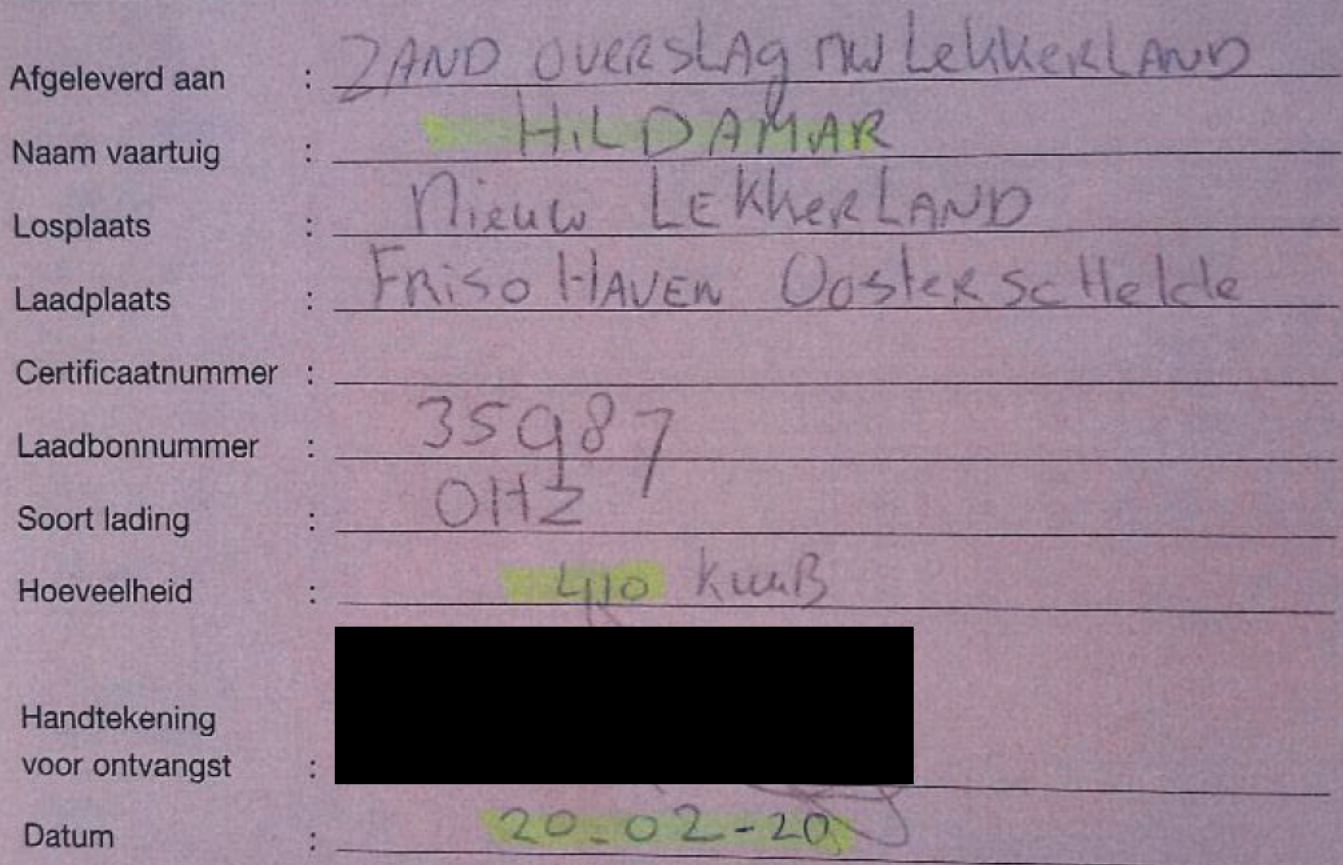 Afgeleverd aan : ZAND OVERSLAg nw LekkerLAND
Naam vaartuig : HiLDAMAR
Losplaats : Nieuw LEkkerLAND
Laadplaats : FRiSO HAVEN OosterScHelde
Certificaatnummer :
Laadbonnummer : 35987
Soort lading : OHZ
Hoeveelheid : 410 kuuB
Handtekening
voor ontvangst :
Datum : 20-02-20